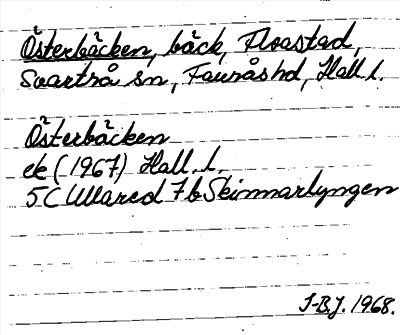 Österbäcken, bäck, Floastad,
Svartrå sn, Fauråshd, Hall.l.
Österbäcken
ek (1967) Hall.l.
5C Ullared 7b Skinnarlyngen
J-B.J. 1968.